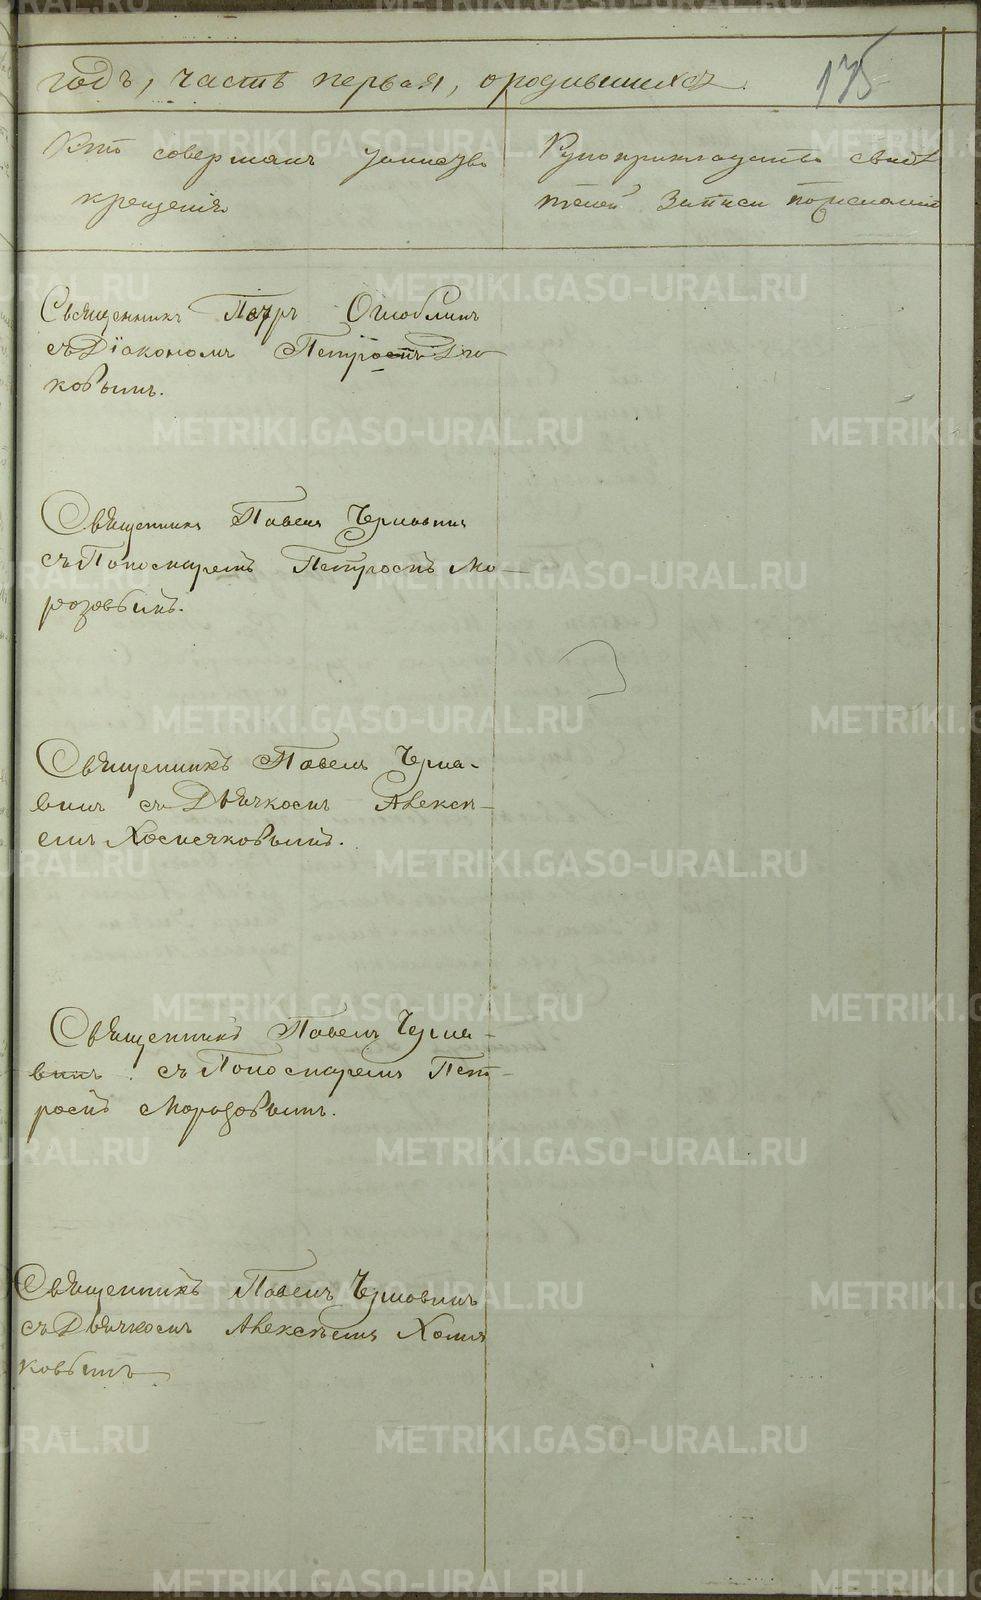 175
годъ, часть первая, о родившихся.
Кто совершалъ таинство
крещенія
Рукоприкладство свидѣ
телей записи по желанію
Священникъ Петръ Оглоблинъ
съ Діакономъ Петромъ
ковымъ.
Священникъ Павелъ Чернавинъ
съ Пономаремъ Петромъ Мо-
розовымъ.
Священникъ Павелъ Черна-
винъ съ Дьячкомъ Алексѣ-
емъ Хомяковымъ.
Священникъ Павелъ Черна-
винъ съ Пономаремъ Пет-
ромъ Морозовымъ.
Священникъ Павелъ Чернавинъ
съ Дьячкомъ Алексѣемъ Хомя
ковымъ
METRIKI.GASO-URAL.RU